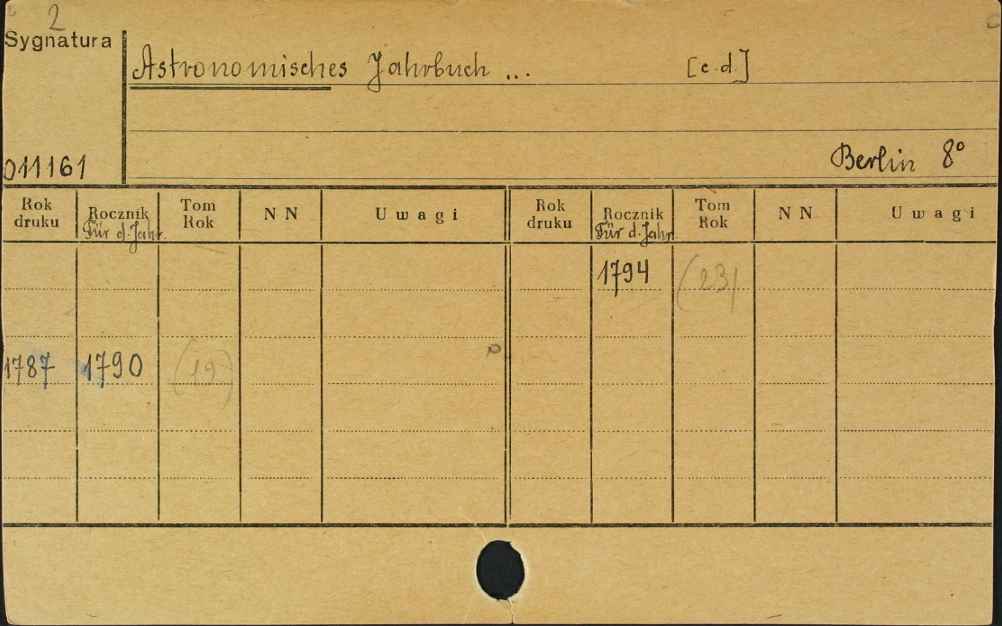 2
Sygnatura
Astronomisches Jahrbuch ... [c.d.]
011161
Berlin 8°
Rok druku Rocznik Für d. Jahr. Tom Rok N N U w a g i Rok druku Rocznik Für d. Jahr Tom Rok N N U w a g i
1794 (23)
1787 1790 (19)